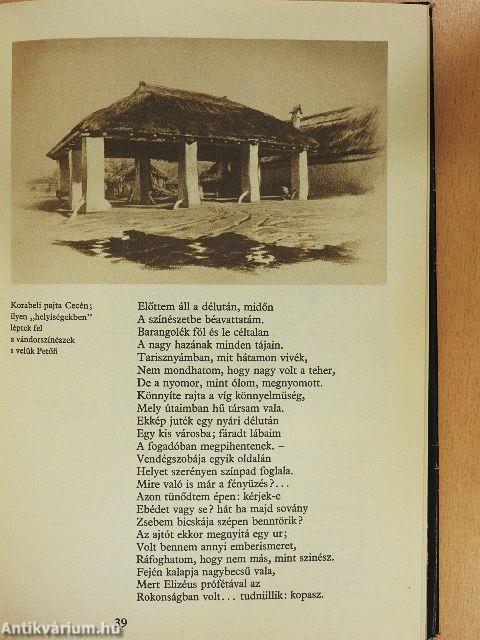 Korabeli pajta Cecén;
ilyen „helyiségekben”
léptek fel
a vándorszínészek
s velük Petőfi
Előttem áll a délután, midőn
A színészetbe béavattatám.
Barangolék föl és le céltalan
A nagy hazának minden tájain.
Tarisznyámban, mit hátamon vivék,
Nem mondhatom, hogy nagy volt a teher,
De a nyomor, mint ólom, megnyomott.
Könnyíte rajta a víg könnyelmüség,
Mely útaimban hű társam vala.
Ekkép juték egy nyári délután
Egy kis városba; fáradt lábaim
A fogadóban megpihentenek. –
Vendégszobája egyik oldalán
Helyet szerényen színpad foglala.
Mire való is már a fényüzés?...
Azon tünődtem épen: kérjek-e
Ebédet vagy se? hát ha majd sovány
Zsebem bicskája szépen benntörik?
Az ajtót ekkor megnyitá egy ur;
Volt bennem annyi emberismeret,
Ráfoghatom, hogy nem más, mint szinész.
Fején kalapja nagybecsű vala,
Mert Elizéus prófétával az
Rokonságban volt... tudniillik: kopasz.
39
Antikvárium.hu